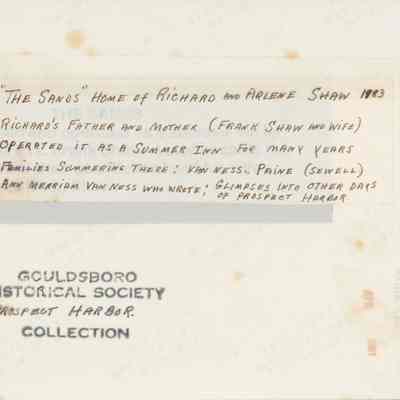 "THE SANDS" HOME OF RICHARD AND ARLENE SHAW 1983
RICHARD'S FATHER AND MOTHER (FRANK SHAW AND WIFE)
OPERATED IT AS A SUMMER INN FOR MANY YEARS
FAMILIES SUMMERING THERE: VAN NESS, PAINE (SEWELL)
ANN MERRIAM VAN NESS WHO WROTE: GLIMPSES INTO OTHER DAYS
OF PROSPECT HARBOR
GOULDSBORO
HISTORICAL SOCIETY
PROSPECT HARBOR.
COLLECTION